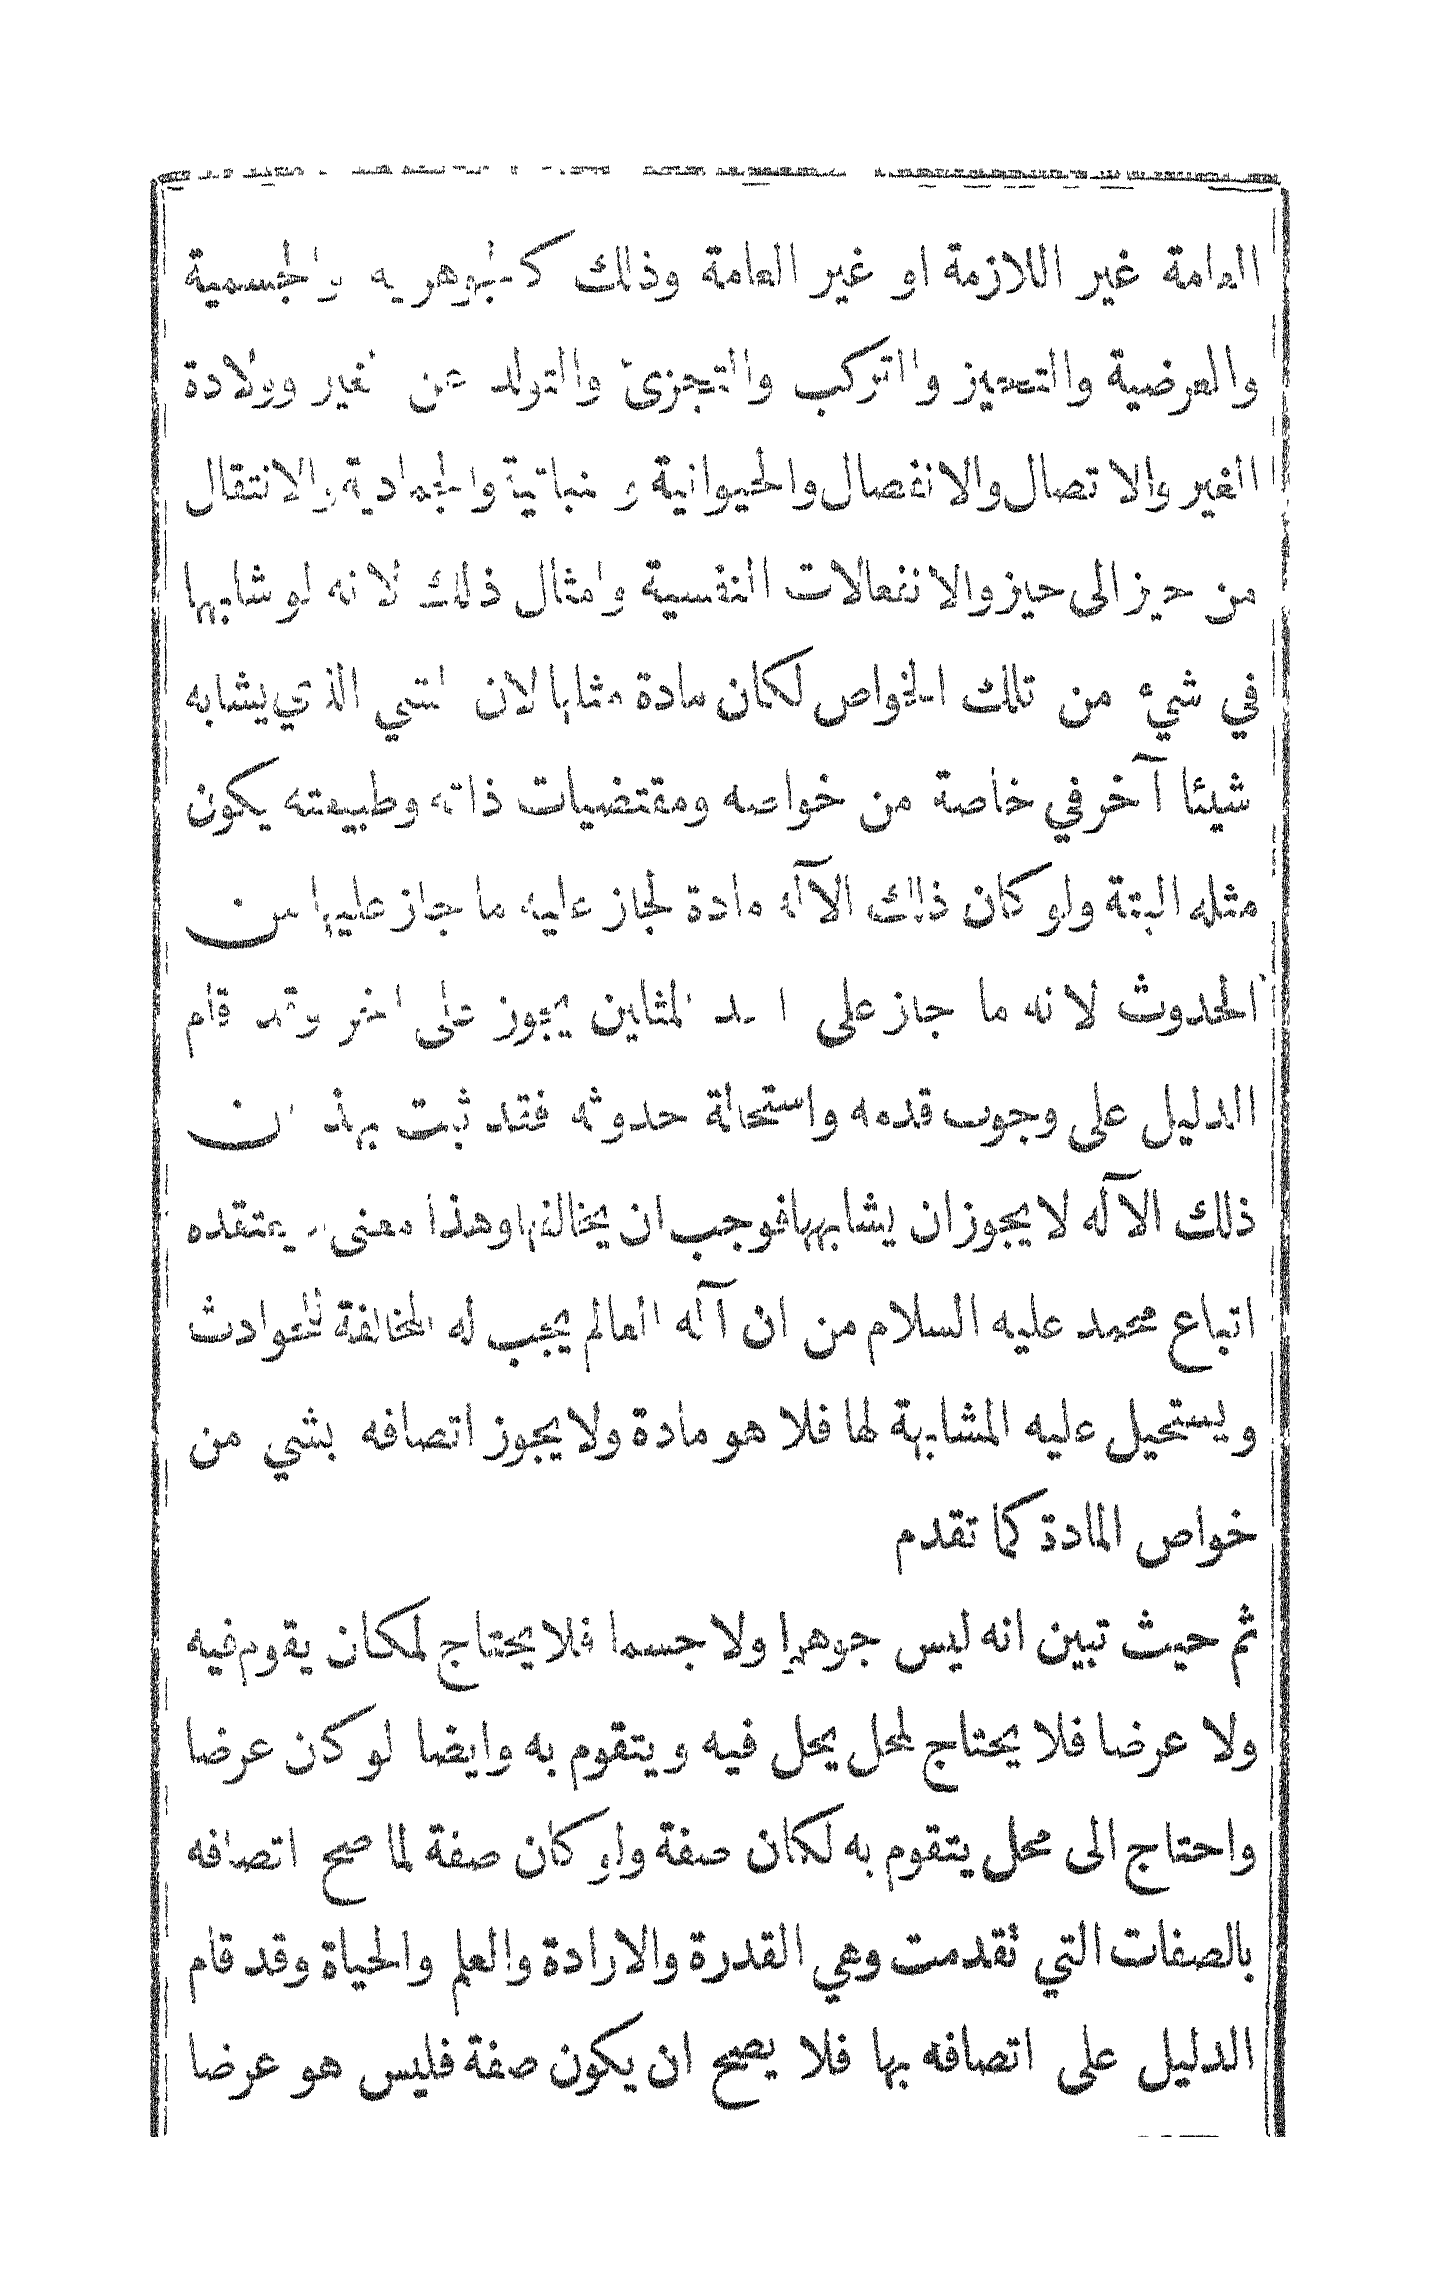 العامة غير اللازمة او غير العامة وذلك كالجوهرية والجسمية
والعرضية والتحيز والتركب والتجزئ والتولد عن الغير وولادة
الغير والاتصال والانفصال والحيوانية والنباتية والجمادية والانتقال
من حيز الى حيز والانفعالات النفسية وامثال ذلك لانه لو شابهها
في شيء من تلك الخواص لكان مادة مثلها لان الشي الذي يشابه
شيئا آخر في خاصة من خواصه ومقتضيات ذاته وطبيعته يكون
مثله البتة ولو كان ذلك الآله مادة لجاز عليه ما جاز عليها من
الحدوث لانه ما جاز على احد المثلين يجوز على الاخر وقد قام
الدليل على وجوب قدمه واستحالة حدوثه فقد ثبت بهذا ان
ذلك الآله لا يجوز ان يشابهها فوجب ان يخالفها وهذا معنى ما يعتقده
اتباع محمد عليه السلام من ان آله العالم يجب له المخالفة للحوادث
ويستحيل عليه المشابهة لها فلا هو مادة ولا يجوز اتصافه بشي من
خواص المادة كما تقدم
ثم حيث تبين انه ليس جوهرا ولا جسما فلا يحتاج لمكان يقوم فيه
ولا عرضا فلا يحتاج لمحل يحل فيه ويتقوم به وايضا لو كان عرضا
واحتاج الى محل يتقوم به لكان صفة ولو كان صفة لما صح اتصافه
بالصفات التي تقدمت وهي القدرة والارادة والعلم والحياة وقد قام
الدليل على اتصافه بها فلا يصح ان يكون صفة فليس هو عرضا